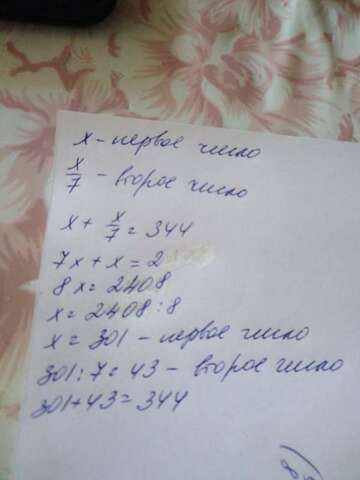 x - первое число
x/7 - второе число
x + x/7 = 344
7x + x = 2
8x = 2408
x = 2408 : 8
x = 301 - первое число
301 : 7 = 43 - второе число
301 + 43 = 344